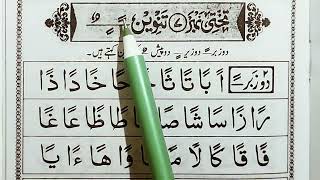 تختی نمبر ۷ تنوین
دو زبر ـً دو زیر ـٍ دو پیش کہتے ہیں۔
دو زبر ـً اً بًا تًا ثًا حًا خًا دًا ذًا
رًا زًا سًا شًا صًا طًا ظًا عًا غًا
فًا قًا كًا لًا مًا وًا هًا ءًا يًا